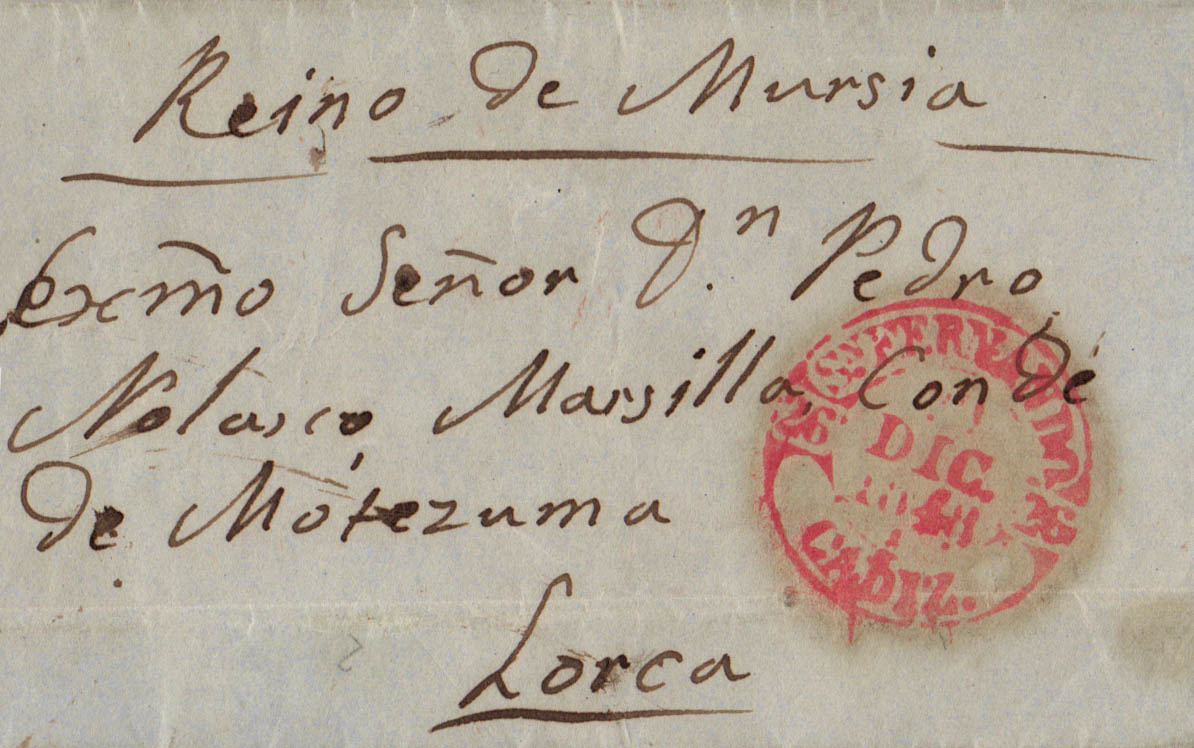 Reino de Mursia
Exm̃o Señor D.n Pedro
Nolasco Marsilla, Conde
de Mótezuma
Lorca
DIC.
CADIZ.